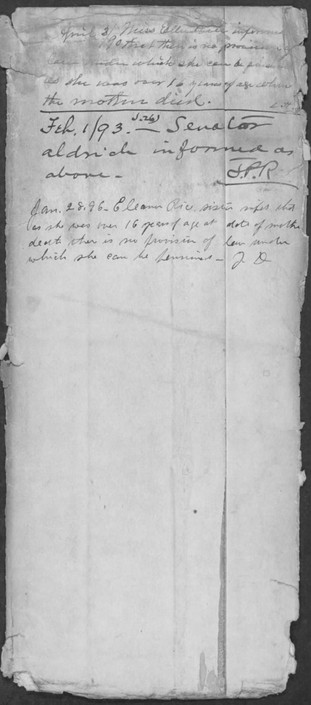 April 3/ Miss Ellen informed
that there is no provision
law under which she can be
as she was over 16 years of age when
the mother died.
Feb. 1/93. — Senator
aldrich informed as
above — J.P.R
Jan. 28. 96 - Eleanor Rice, sister that
as she was over 16 years of age at date of mother
death there is no provision of law under
which she can be pensioned - J. D